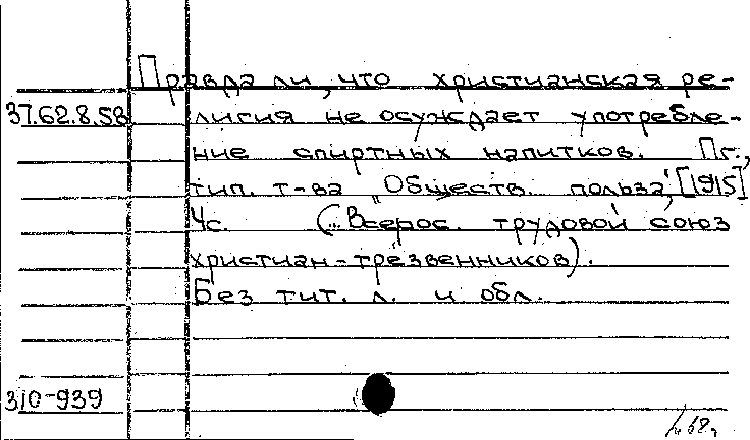 Правда ли, что христианская ре-
37.62.8.58 лигия не осуждает употребле-
ние спиртных напитков. Пг.,
тип. т-ва "Обществ. польза", [1915]
4с. (Всерос. трудовой союз
христиан-трезвенников).
Без тит. л. и обл.
310-939